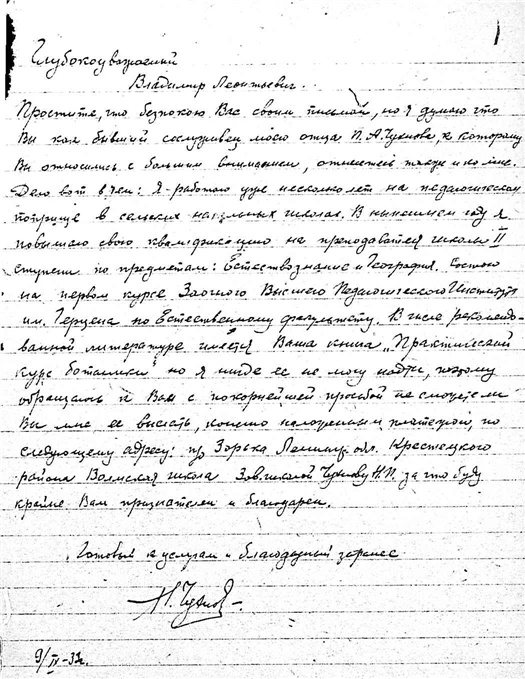 1
Глубокоуважаемый
Владимир Леонтьевич.
Простите, что безпокою Вас своим письмом, но я думаю что
Вы как бывший сослуживец моего отца П. А. Чукнова, к которому
Вы относились с большим вниманием, отнесетесь также и ко мне.
Дело вот в чем: Я работаю уже несколько лет на педагогическом
поприще в сельских начальных школах. В нынешнем году я
повышаю свою квалификацию на преподавателя школы II
ступени по предметам: Естествознание и География. Состою
на первом курсе Заочного Высшего Педагогического Института
им. Герцена по Естественному факультету. В числе рекомендо-
ванной литературе имеется Ваша книга „Практический
курс ботаники" но я нигде ее не могу найти, поэтому
обращаюсь к Вам с покорнейшей просьбой не сможете ли
Вы мне ее выслать, конечно наложенным платежом, по
следующему адресу: п/о Зорька Ленингр. обл. Крестецкого
района Волмская школа Зав. школой Чукнову Н. П. за что буду
крайне Вам признателен и благодарен.
Готовый к услугам и благодарный заранее
Н. Чукнов
9/IV-32г.